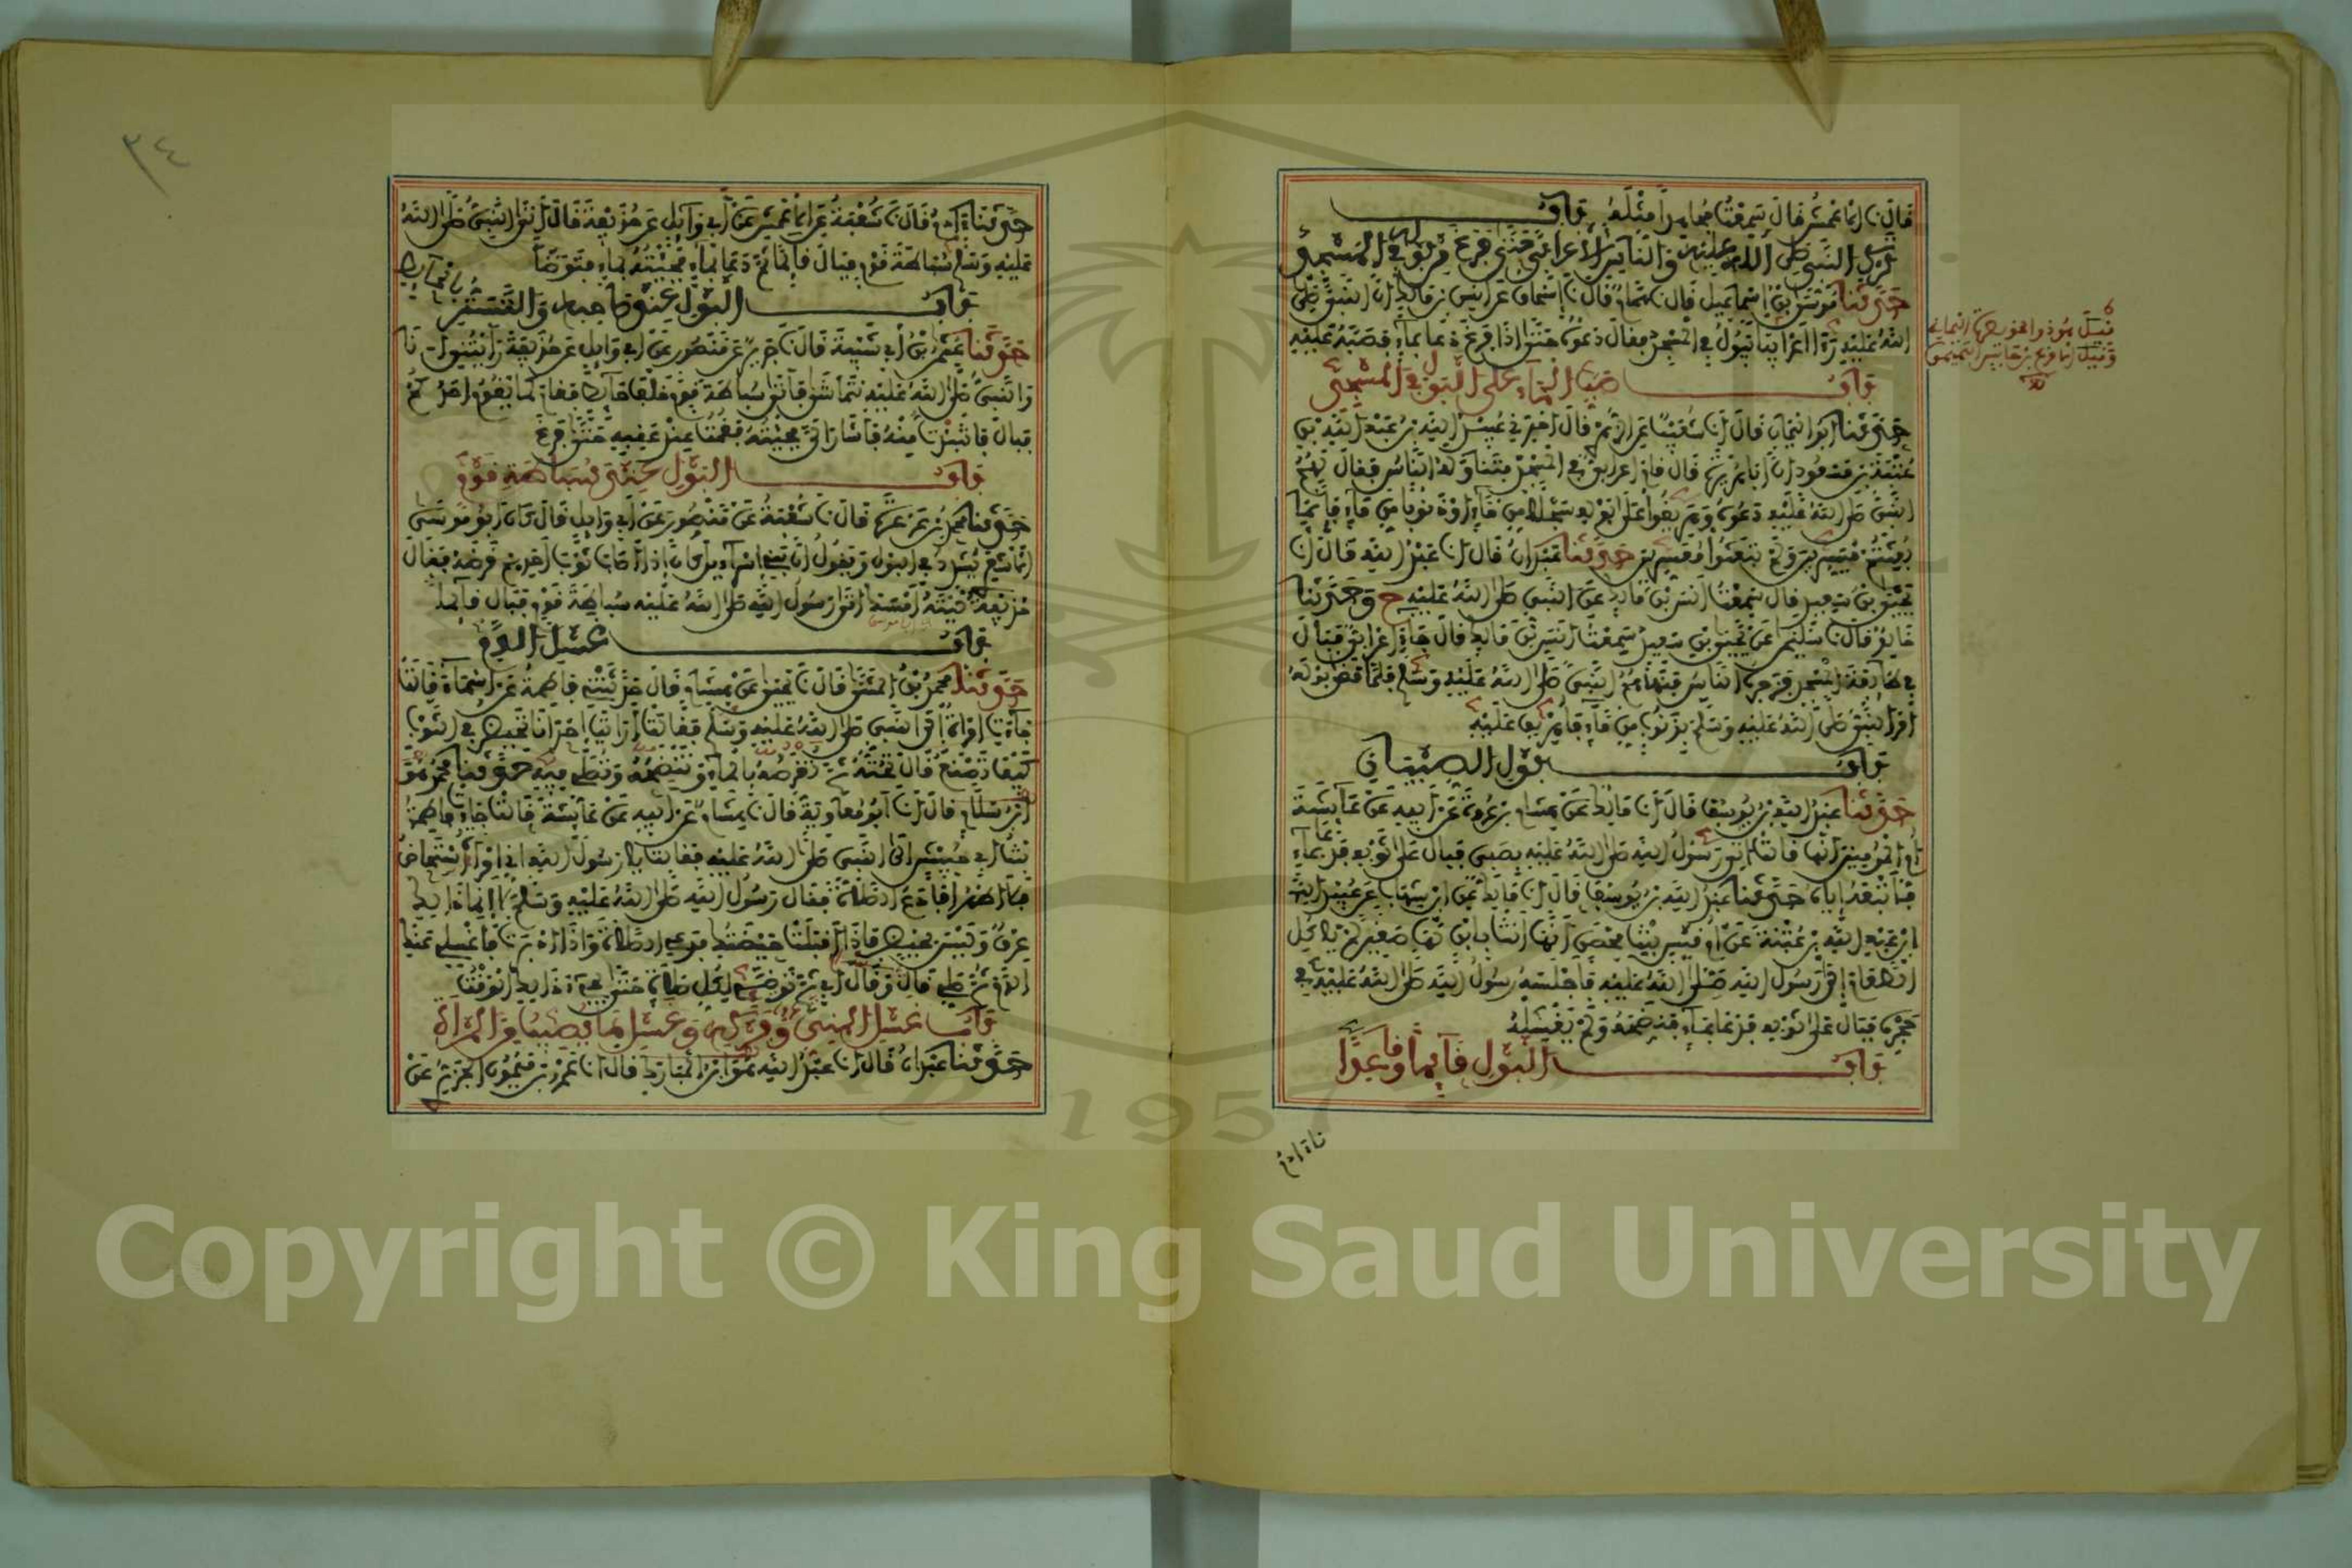 قال نا الاعمش قال سمعت مجاهدا مثله باب
ترك النبي صلى الله عليه والناس الأعرابي حتى فرغ من بوله في المسجد
حدثنا موسى بن إسماعيل قال نا همام قال نا إسحاق عن أنس بن مالك أن النبي صلى
الله عليه رأى أعرابيا يبول في المسجد فقال دعوه حتى إذا فرغ دعا بماء فصبه عليه
باب صب الماء على البول في المسجد
حدثنا أبو اليمان قال أنا شعيب عن الزهري قال أخبرني عبيد الله بن عبد الله بن
عتبة بن مسعود أن أبا هريرة قال قام أعرابي في المسجد فبال فتناوله الناس فقال لهم
النبي صلى الله عليه دعوه وهريقوا على بوله سجلا من ماء أو ذنوبا من ماء فإنما
بعثتم ميسرين ولم تبعثوا معسرين حدثنا عبدان قال أنا عبد الله قال أنا
يحيى بن سعيد قال سمعت أنس بن مالك عن النبي صلى الله عليه ح وحدثنا
خالد قال نا سليمن عن يحيى بن سعيد سمعت أنس بن مالك قال جاء أعرابي فبال
في طائفة المسجد فزجره الناس فنهاهم النبي صلى الله عليه وسلم فلما قضى بوله
أمر النبي صلى الله عليه وسلم بذنوب من ماء فأهريق عليه
باب بول الصبيان
حدثنا عبد الله بن يوسف قال أنا مالك عن هشام بن عروة عن أبيه عن عائشة
أم المومنين أنها قالت أتي رسول الله صلى الله عليه بصبي فبال على ثوبه فدعا بماء
فأتبعه إياه حدثنا عبد الله بن يوسف قال أنا مالك عن ابن شهاب عن عبيد الله
ابن عبد الله بن عتبة عن أم قيس بنت محصن أنها أتت بابن لها صغير لم ياكل
الطعام إلى رسول الله صلى الله عليه فأجلسه رسول الله صلى الله عليه في
حجره فبال على ثوبه فدعا بماء فنضحه ولم يغسله
باب البول قائما وقاعدا
قيل هو ذو الخويصرة اليماني
وقيل الاقرع بن حابس التميمي
نا ادم
٣٤
حدثنا آدم قال نا شعبة عن الأعمش عن أبي وائل عن حذيفة قال أتى النبي صلى الله
عليه وسلم سباطة قوم فبال قائما ثم دعا بماء فجئته بماء فتوضأ
باب البول عند صاحبه والتستر بالحائط
حدثنا عثمن بن أبي شيبة قال نا جرير عن منصور عن أبي وائل عن حذيفة رأيتني أنا
والنبي صلى الله عليه نتماشى فأتى سباطة قوم خلف حائط فقام كما يقوم أحدكم
فبال فانتبذت منه فأشار إلي فجئته فقمت عند عقبه حتى فرغ
باب البول عند سباطة قوم
حدثنا محمد بن عرعرة قال نا شعبة عن منصور عن أبي وائل قال كان أبو موسى
الأشعري يشدد في البول ويقول إن بني إسرائيل كان إذا أصاب ثوب أحدهم قرضه فقال
حذيفة ليته أمسك أتى رسول الله صلى الله عليه سباطة قوم فبال قائما
باب غسل الدم
حدثنا محمد بن المثنى قال نا يحيى عن هشام قال حدثتني فاطمة عن أسماء قالت
جاءت امرأة إلى النبي صلى الله عليه وسلم فقالت أرأيت إحدانا تحيض في الثوب
كيف تصنع قال تحته ثم تقرصه بالماء وتنضحه وتصلي فيه حدثنا محمد هو
ابن سلام قال أنا أبو معاوية قال نا هشام عن أبيه عن عائشة قالت جاءت فاطمة
بنت أبي حبيش إلى النبي صلى الله عليه فقالت يا رسول الله إني امرأة أستحاض
فلا أطهر أفأدع الصلاة فقال رسول الله صلى الله عليه وسلم لا إنما ذلك
عرق وليس بحيض فإذا أقبلت حيضتك فدعي الصلاة وإذا أدبرت فاغسلي عنك
الدم ثم صلي قال وقال أبي ثم توضئي لكل صلاة حتى يجيء ذلك الوقت
باب غسل المني وفركه وغسل ما يصيب من المرأة
حدثنا عبدان قال أنا عبد الله هو ابن المبارك قال أنا عمرو بن ميمون الجزري عن
Copyright © King Saud University
1957